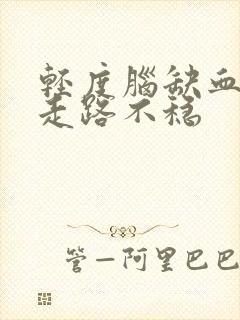 轻度腦缺血
走路不稳
管一阿里巴巴